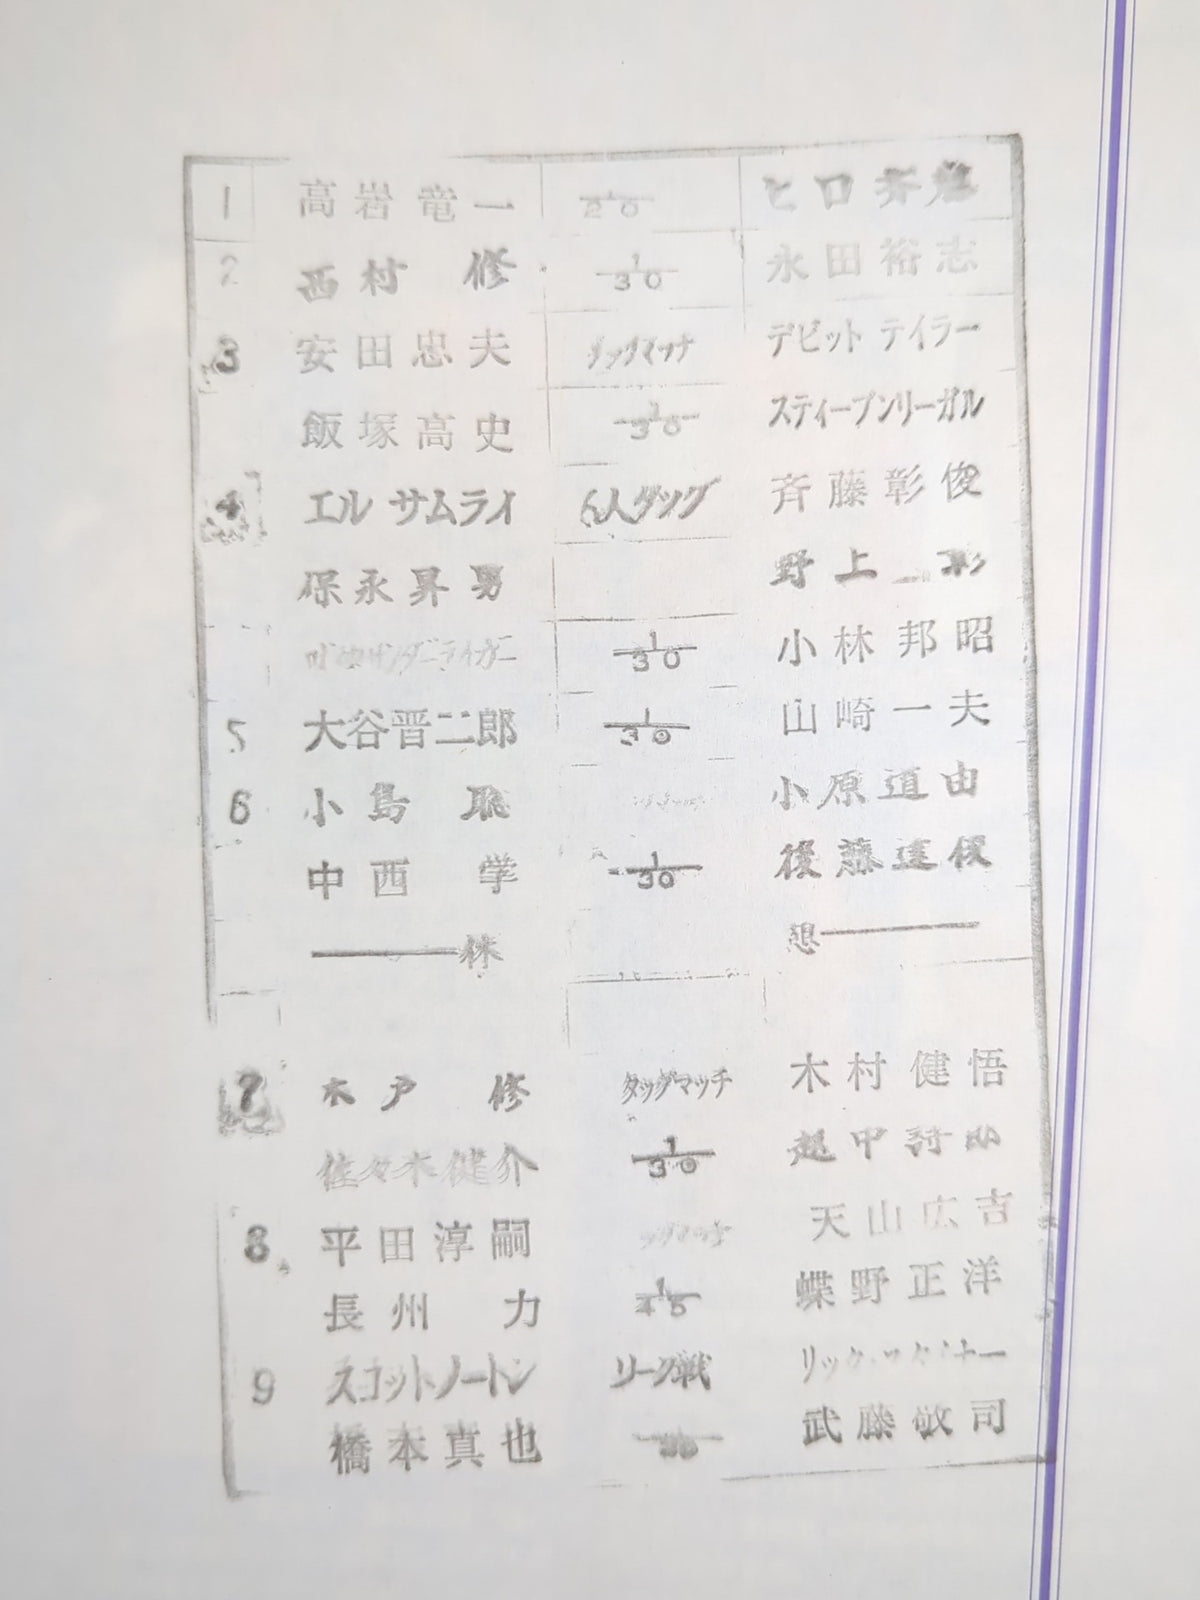 1 高岩竜一 1/20 ヒロ斉藤
2 西村 修 1/30 永田裕志
3 安田忠夫 タッグマッチ デビット テイラー
飯塚高史 1/30 スティーブンリーガル
4 エル サムライ 6人タッグ 斉藤彰俊
保永昇男 野上 彰
サンダーライガー 1/30 小林邦昭
5 大谷晋二郎 1/30 山崎一夫
6 小島 聡 小原道由
中西 学 1/30 後藤達俊
休 憩
7 木戸 修 タッグマッチ 木村健悟
佐々木健介 1/30 越中詩郎
8 平田淳嗣 天山広吉
長州 力 1/45 蝶野正洋
9 スコットノートン リーグ戦 リック
橋本真也 武藤敬司